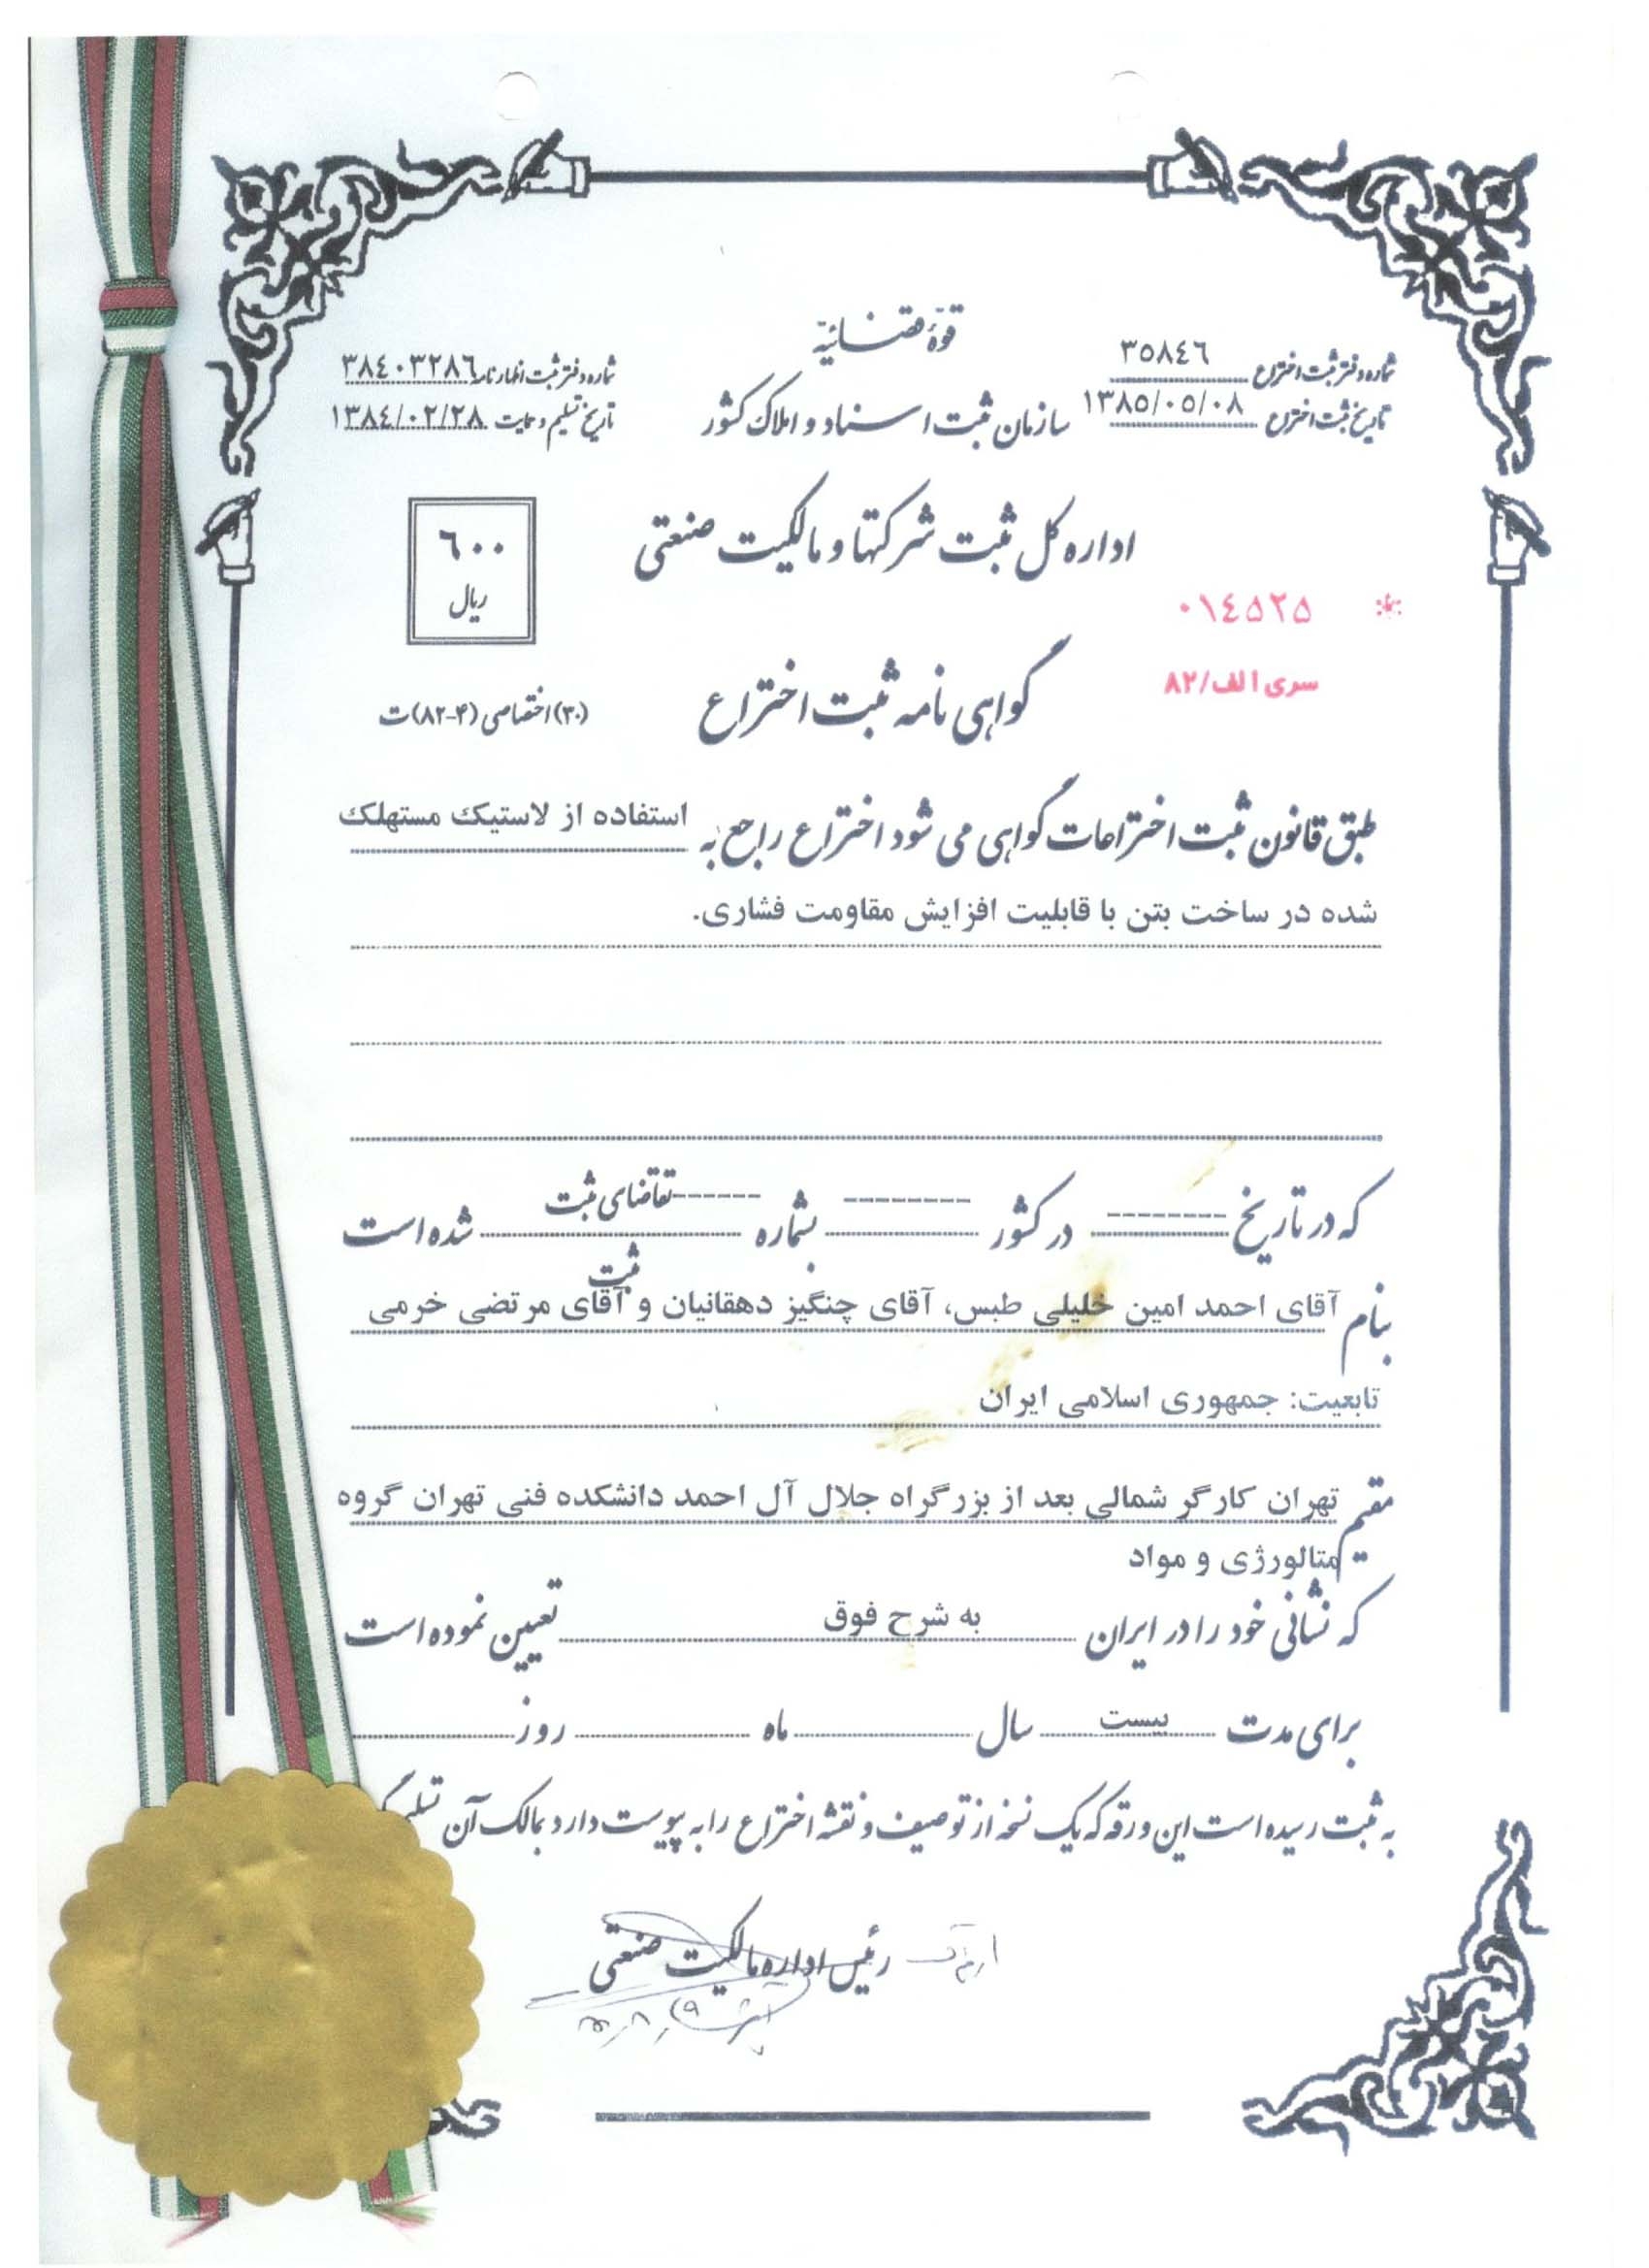 قوۀ قضائیّه
شماره دفتر ثبت اختراع ٣٥٨٤٦
شماره دفتر ثبت اظهارنامه ٣٨٤٠٣٢٨٦
سازمان ثبت اسناد و املاک کشور
تاریخ ثبت اختراع ١٣٨٥/٠٥/٠٨
تاریخ تسلیم و حمایت ١٣٨٤/٠٢/٢٨
اداره کل ثبت شرکتها و مالکیت صنعتی
٦٠٠
ریال
٠١٤٥٢٥
سری الف/٨٢
گواهی نامه ثبت اختراع
(٣٠) اختصاصی (٤-٨٢)ت
طبق قانون ثبت اختراعات گواهی می شود اختراع راجع به استفاده از لاستیک مستهلک
شده در ساخت بتن با قابلیت افزایش مقاومت فشاری.
که در تاریخ --------- در کشور --------- بشماره ------- تقاضای ثبت شده است
ثبت
بنام آقای احمد امین خلیلی طبس، آقای چنگیز دهقانیان و آقای مرتضی خرمی
تابعیت: جمهوری اسلامی ایران
مقیم تهران کارگر شمالی بعد از بزرگراه جلال آل احمد دانشکده فنی تهران گروه
متالورژی و مواد
که نشانی خود را در ایران به شرح فوق تعیین نموده است
برای مدت بیست سال ماه روز
به ثبت رسیده است این ورقه که یک نسخه از توصیف و نقشه اختراع را به پیوست دارد بمالک آن
رئیس اداره مالکیت صنعتی